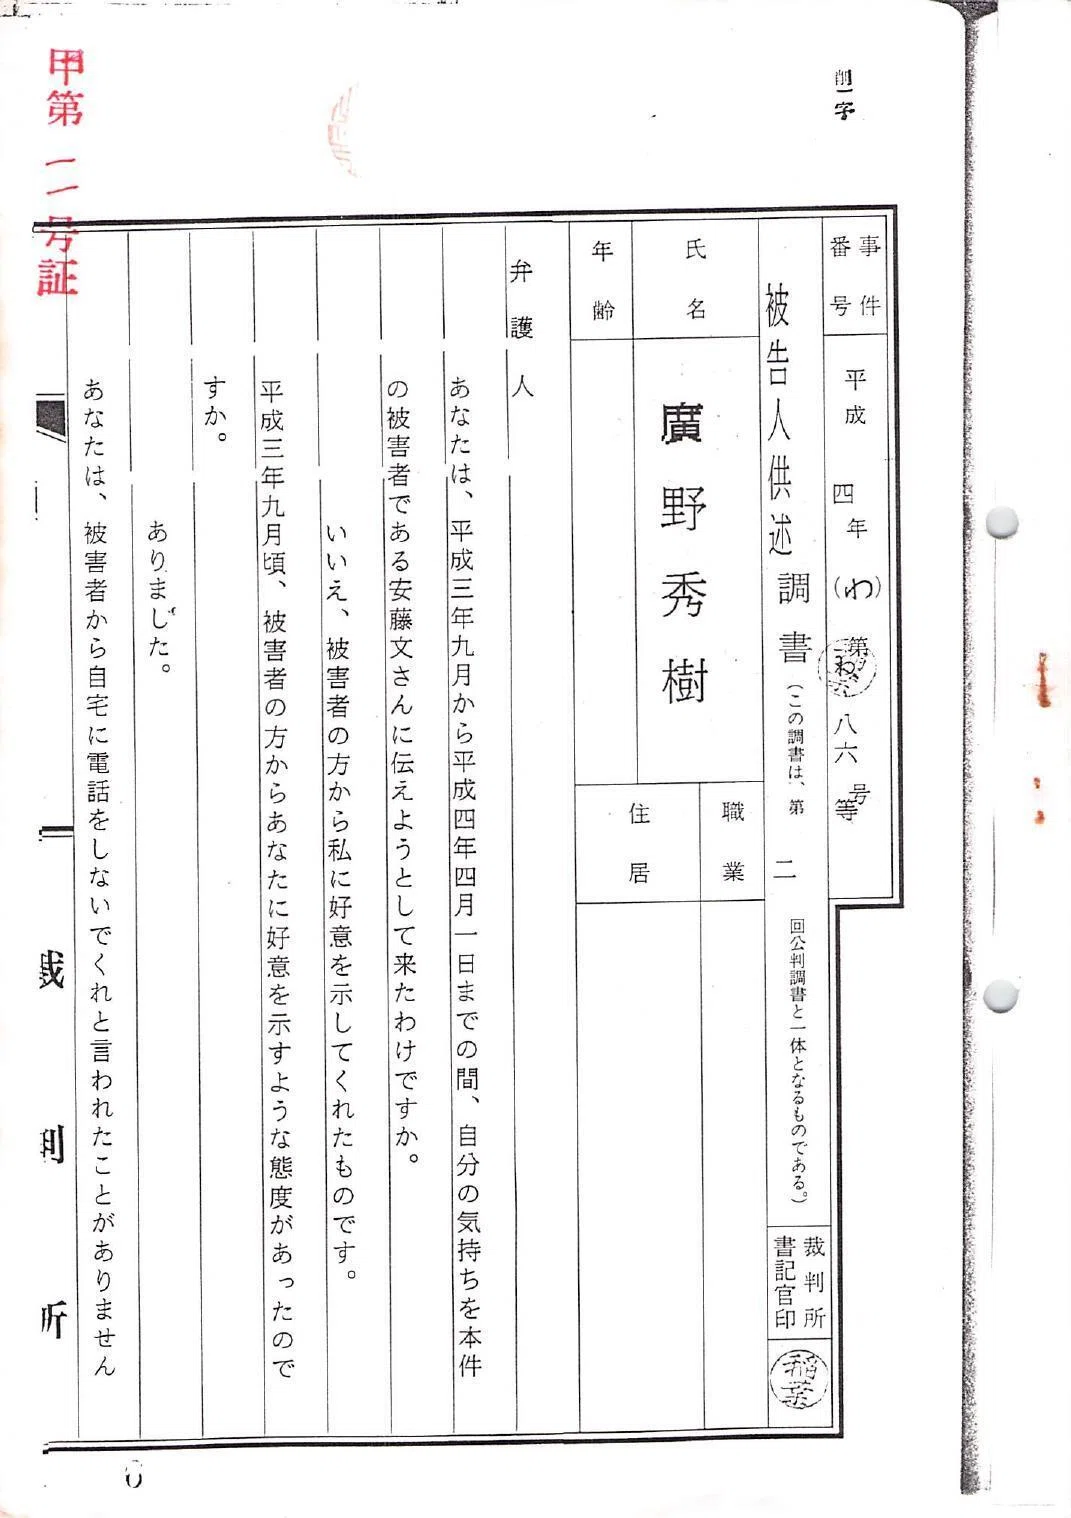 甲第一一号証
削一字
事件番号
平成四年(わ)第八六号等
被告人供述調書(この調書は、第二回公判調書と一体となるものである。)
裁判所書記官印
稲葉
氏名
廣野秀樹
年齢
職業
住居
弁護人
あなたは、平成三年九月から平成四年四月一日までの間、自分の気持ちを本件
の被害者である安藤文さんに伝えようとして来たわけですか。
いいえ、被害者の方から私に好意を示してくれたものです。
平成三年九月頃、被害者の方からあなたに好意を示すような態度があったので
すか。
ありました。
あなたは、被害者から自宅に電話をしないでくれと言われたことがありません
裁判所